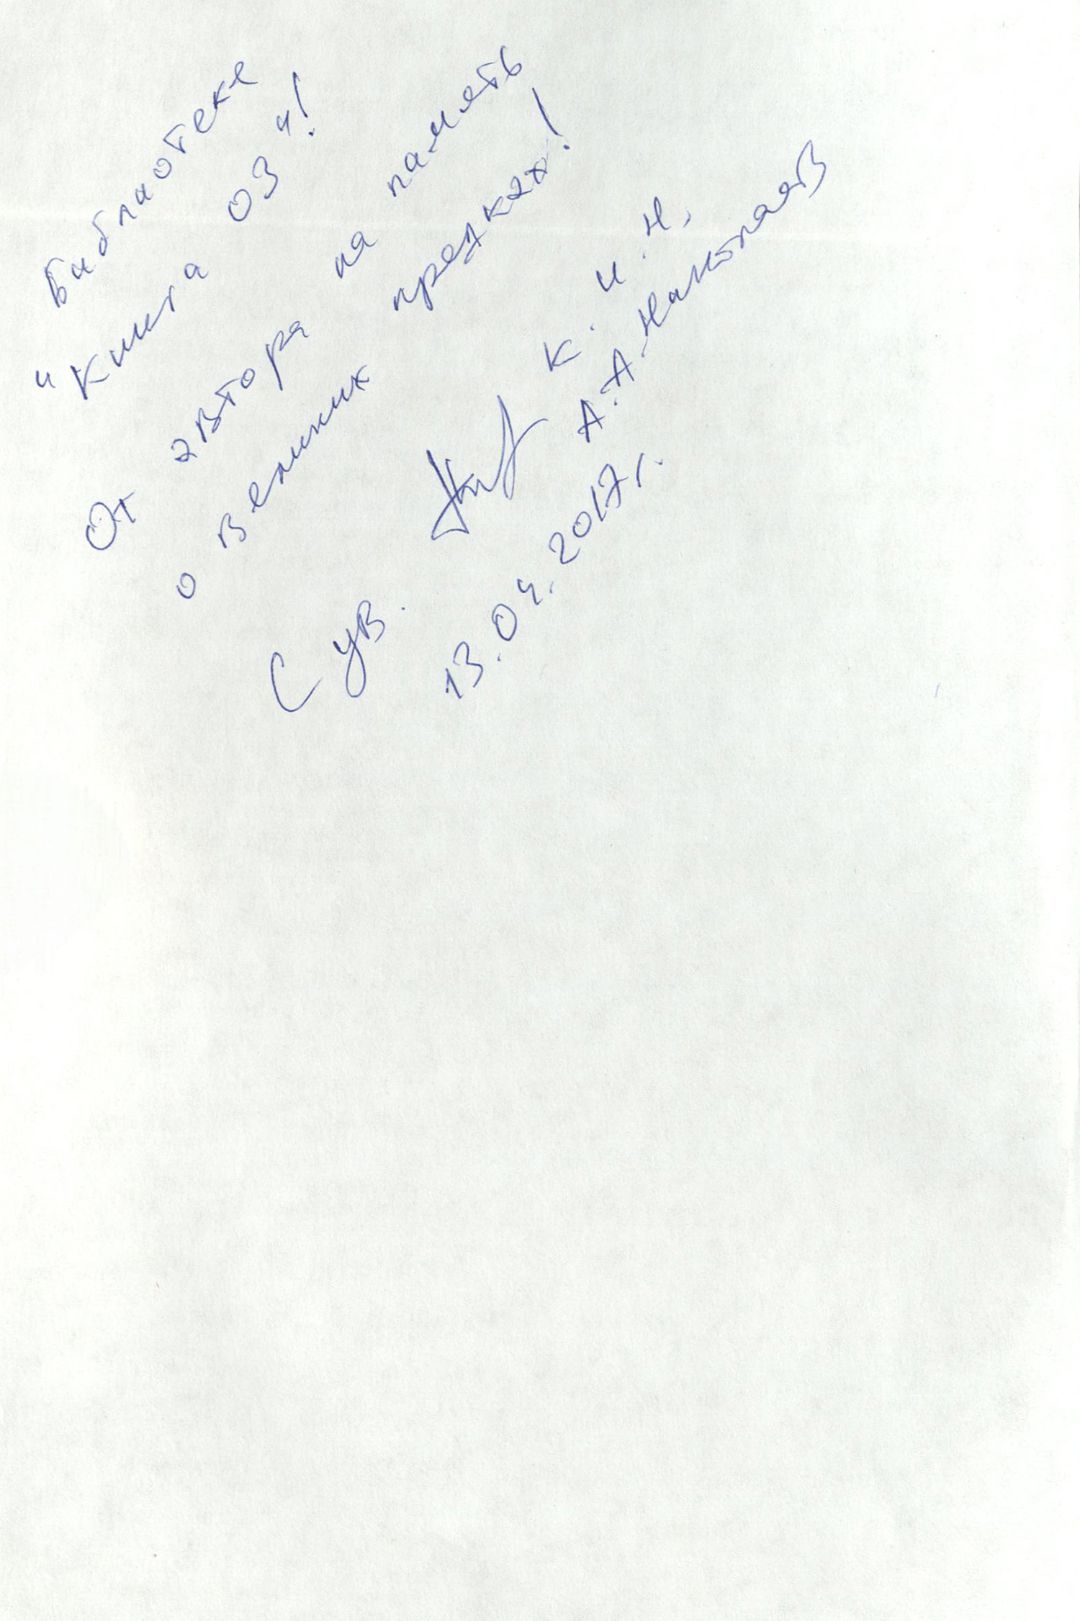 Библиотеке
"Книга 03"!
От автора на память
о великих предках!
С ув. к.и.н.
А.А.
13.04.2017г.